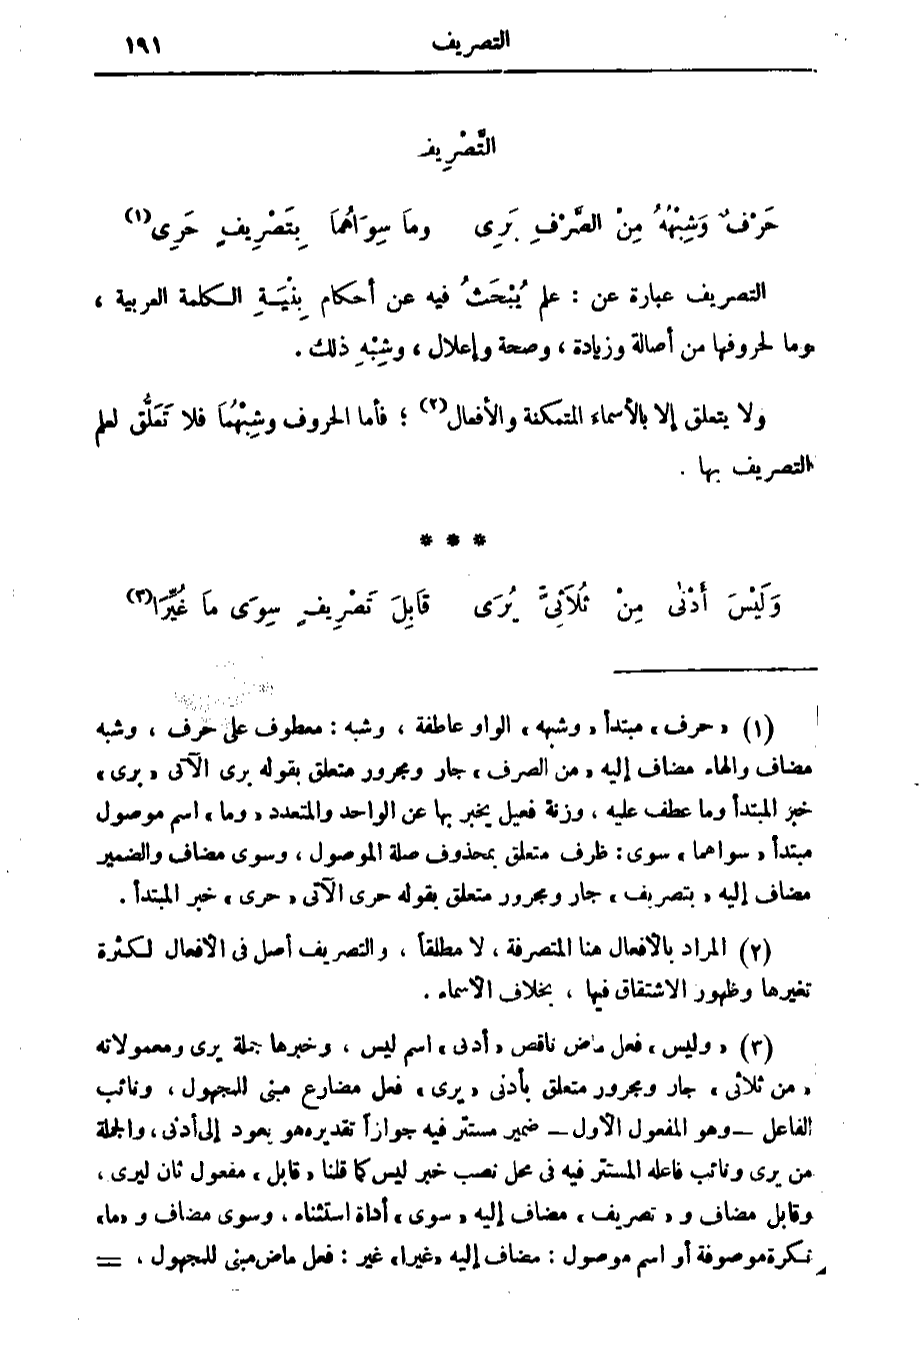 التصريف ١٩١
التَّصْرِيف
حَرْفٌ وَشِبْهُهُ مِنْ الصَّرْفِ بَرِى وما سِوَاهُما بِتَصْرِيفٍ حَرِى(١)
التصريف عبارة عن : علم يُبْحَثُ فيه عن أحكام بِنْيَةِ الكلمة العربية ،
وما لحروفها من أصالة وزيادة ، وصحة وإعلال ، وشِبْهِ ذلك .
ولا يتعلق إلا بالأسماء المتمكنة والأفعال(٢) ؛ فأما الحروف وشِبْهُهَا فلا تَعَلُّق لعلم
التصريف بها .
* * *
وَلَيْسَ أَدْنَى مِنْ ثُلاَثِىٍّ يُرَى قَابِلَ تَصْرِيفٍ سِوَى ما غُيِّرَا(٣)
(١) « حرف » مبتدأ « وشبهه » الواو عاطفة ، وشبه : معطوف على حرف ، وشبه
مضاف والهاء مضاف إليه « من الصرف » جار ومجرور متعلق بقوله برى الآتى « برى »
خبر المبتدأ وما عطف عليه ، وزنة فعيل يخبر بها عن الواحد والمتعدد « وما » اسم موصول
مبتدأ « سواهما » سوى : ظرف متعلق بمحذوف صلة الموصول ، وسوى مضاف والضمير
مضاف إليه « بتصريف » جار ومجرور متعلق بقوله حرى الآتى « حرى » خبر المبتدأ .
(٢) المراد بالأفعال هنا المتصرفة ، لا مطلقاً ، والتصريف أصل فى الأفعال لكثرة
تغيرها وظهور الاشتقاق فيها ، بخلاف الأسماء .
(٣) « وليس » فعل ماض ناقص « أدنى » اسم ليس ، وخبرها جملة يرى ومعمولاته
« من ثلاثى » جار ومجرور متعلق بأدنى « يرى » فعل مضارع مبنى للمجهول ، ونائب
الفاعل — وهو المفعول الأول — ضمير مستتر فيه جوازاً تقديره هو يعود إلى أدنى ، والجملة
من يرى ونائب فاعله المستتر فيه فى محل نصب خبر ليس كما قلنا « قابل » مفعول ثان ليرى ،
وقابل مضاف و « تصريف » مضاف إليه « سوى » أداة استثناء ، وسوى مضاف و « ما »
نكرة موصوفة أو اسم موصول : مضاف إليه « غيرا » غير : فعل ماض مبنى للمجهول ، =